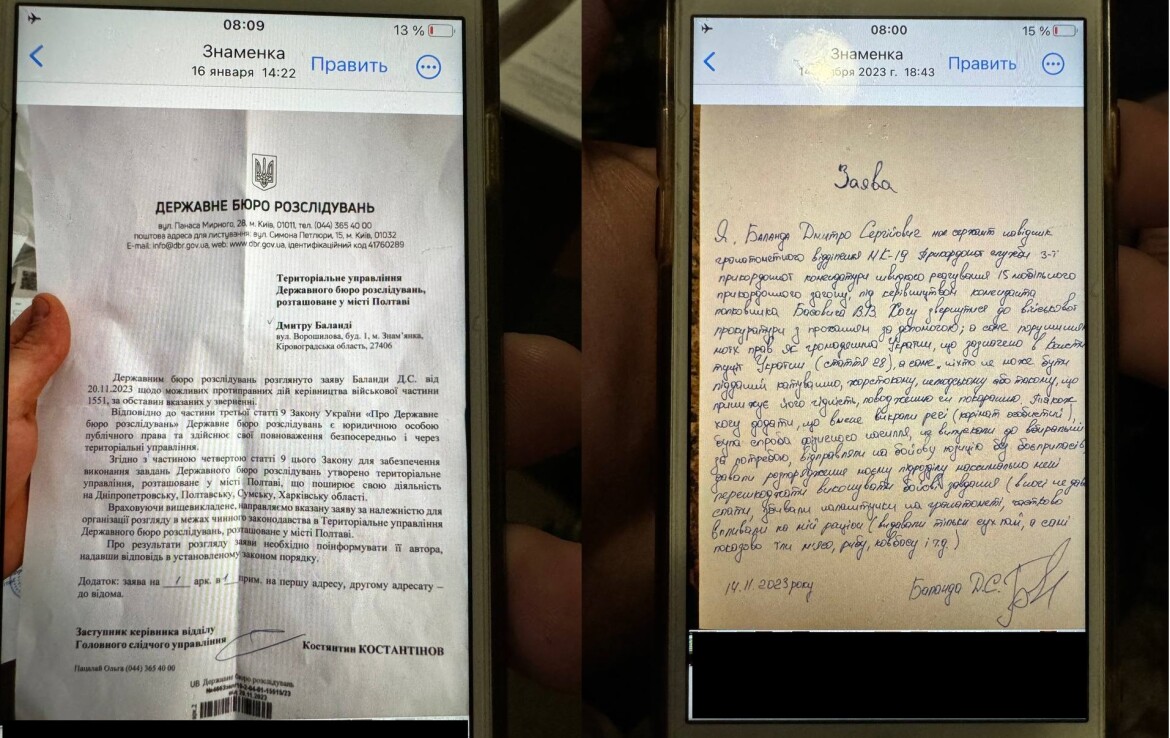 08:09
13 %
Знаменка
16 января 14:22
Править
ДЕРЖАВНЕ БЮРО РОЗСЛІДУВАНЬ
вул. Панаса Мирного, 28, м. Київ, 01011, тел. (044) 365 40 00
поштова адреса для листування: вул. Симона Петлюри, 15, м. Київ, 01032
E-mail: info@dbr.gov.ua, web: www.dbr.gov.ua, ідентифікаційний код 41760289
Територіальне управління
Державного бюро розслідувань,
розташоване у місті Полтаві
Дмитру Баланді
вул. Ворошилова, буд. 1, м. Знам’янка,
Кіровоградська область, 27406
Державним бюро розслідувань розглянуто заяву Баланди Д.С. від
20.11.2023 щодо можливих протиправних дій керівництва військової частини
1551, за обставин вказаних у зверненні.
Відповідно до частини третьої статті 9 Закону України «Про Державне
бюро розслідувань» Державне бюро розслідувань є юридичною особою
публічного права та здійснює свої повноваження безпосередньо і через
територіальні управління.
Згідно з частиною четвертою статті 9 цього Закону для забезпечення
виконання завдань Державного бюро розслідувань утворено територіальне
управління, розташоване у місті Полтаві, що поширює свою діяльність
на Дніпропетровську, Полтавську, Сумську, Харківську області.
Враховуючи вищевикладене, направляємо вказану заяву за належністю для
організації розгляду в межах чинного законодавства в Територіальне управління
Державного бюро розслідувань, розташоване у місті Полтаві.
Про результати розгляду заяви необхідно поінформувати її автора,
надавши відповідь в установленому законом порядку.
Додаток: заява на 1 арк. в 1 прим. на першу адресу, другому адресату –
до відома.
Заступник керівника відділу
Головного слідчого управління
Костянтин КОСТАНТІНОВ
Ольга (044) 365 40 00
UB Державне бюро розслідувань
08:00
15 %
Знаменка
2023 г. 18:43
Править
Заява
Я, Баланда Дмитро Сергійович сержант навідник
гранатометного відділення прикордонної служби 3-ї
прикордонної комендатури швидкого реагування 15 мобільного
прикордонного загону, під керівництвом коменданта
полковника В.В. Хочу звернутися до військової
прокуратури з проханням за допомогою; а саме порушення
моїх прав як громадянина України, що зазначено в Консти
туції України (стаття 28), а саме ніхто не може бути
підданий катуванню, жорстокому, нелюдському або такому, що
принижує його гідність, поводженню чи покаранню. Також
хочу додати, що в мене викрали речі (особисті),
була спроба фізичного насилля, не випускали до вбиральні
за потребою, відправляли на бойову позицію без боєприпасів,
давали розпорядження моєму підрозділу максимально мені
перешкоджати виконувати бойові завдання (вночі не дава
спати, збивали налаштунки на гранатометі, частково
впливали на мій раціон (видавали тільки сух пай, а самі
показово їли м'ясо, рибу, ковбасу і т.д.)
14.11.2023 року
Баланда Д.С.